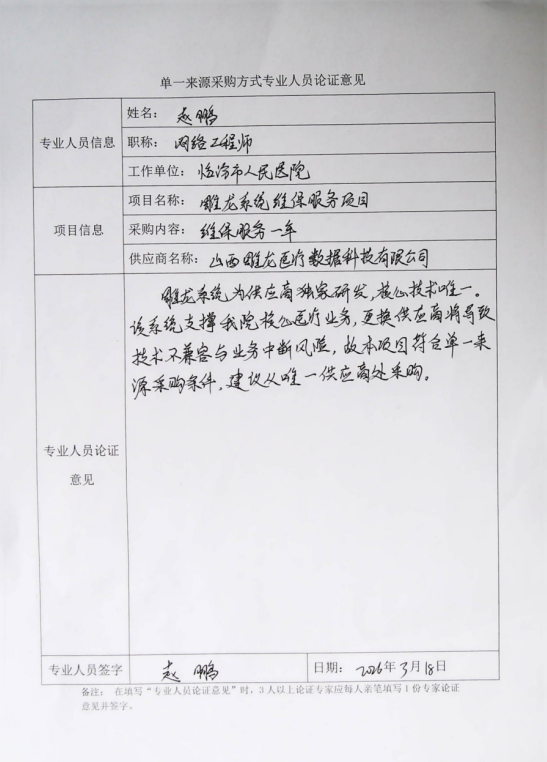 单一来源采购方式专业人员论证意见
专业人员信息
姓名：赵鹏
职称：网络工程师
工作单位：临汾市人民医院
项目信息
项目名称：雕龙系统维保服务项目
采购内容：维保服务一年
供应商名称：山西雕龙医疗数据科技有限公司
专业人员论证
意见
雕龙系统为供应商独家研发，核心技术唯一。
该系统支撑我院核心医疗业务，更换供应商将导致
技术不兼容与业务中断风险，故本项目符合单一来
源采购条件，建议从唯一供应商处采购。
专业人员签字
赵鹏
日期：2026年3月18日
备注：在填写“专业人员论证意见”时，3人以上论证专家应每人亲笔填写1份专家论证
意见并签字。